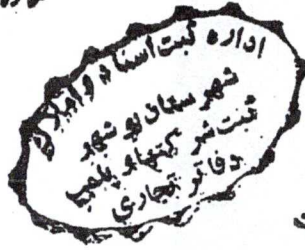 اداره ثبت اسناد و املاک
شهرستان بوشهر
ثبت شرکتها و پلمپ
دفاتر تجاری